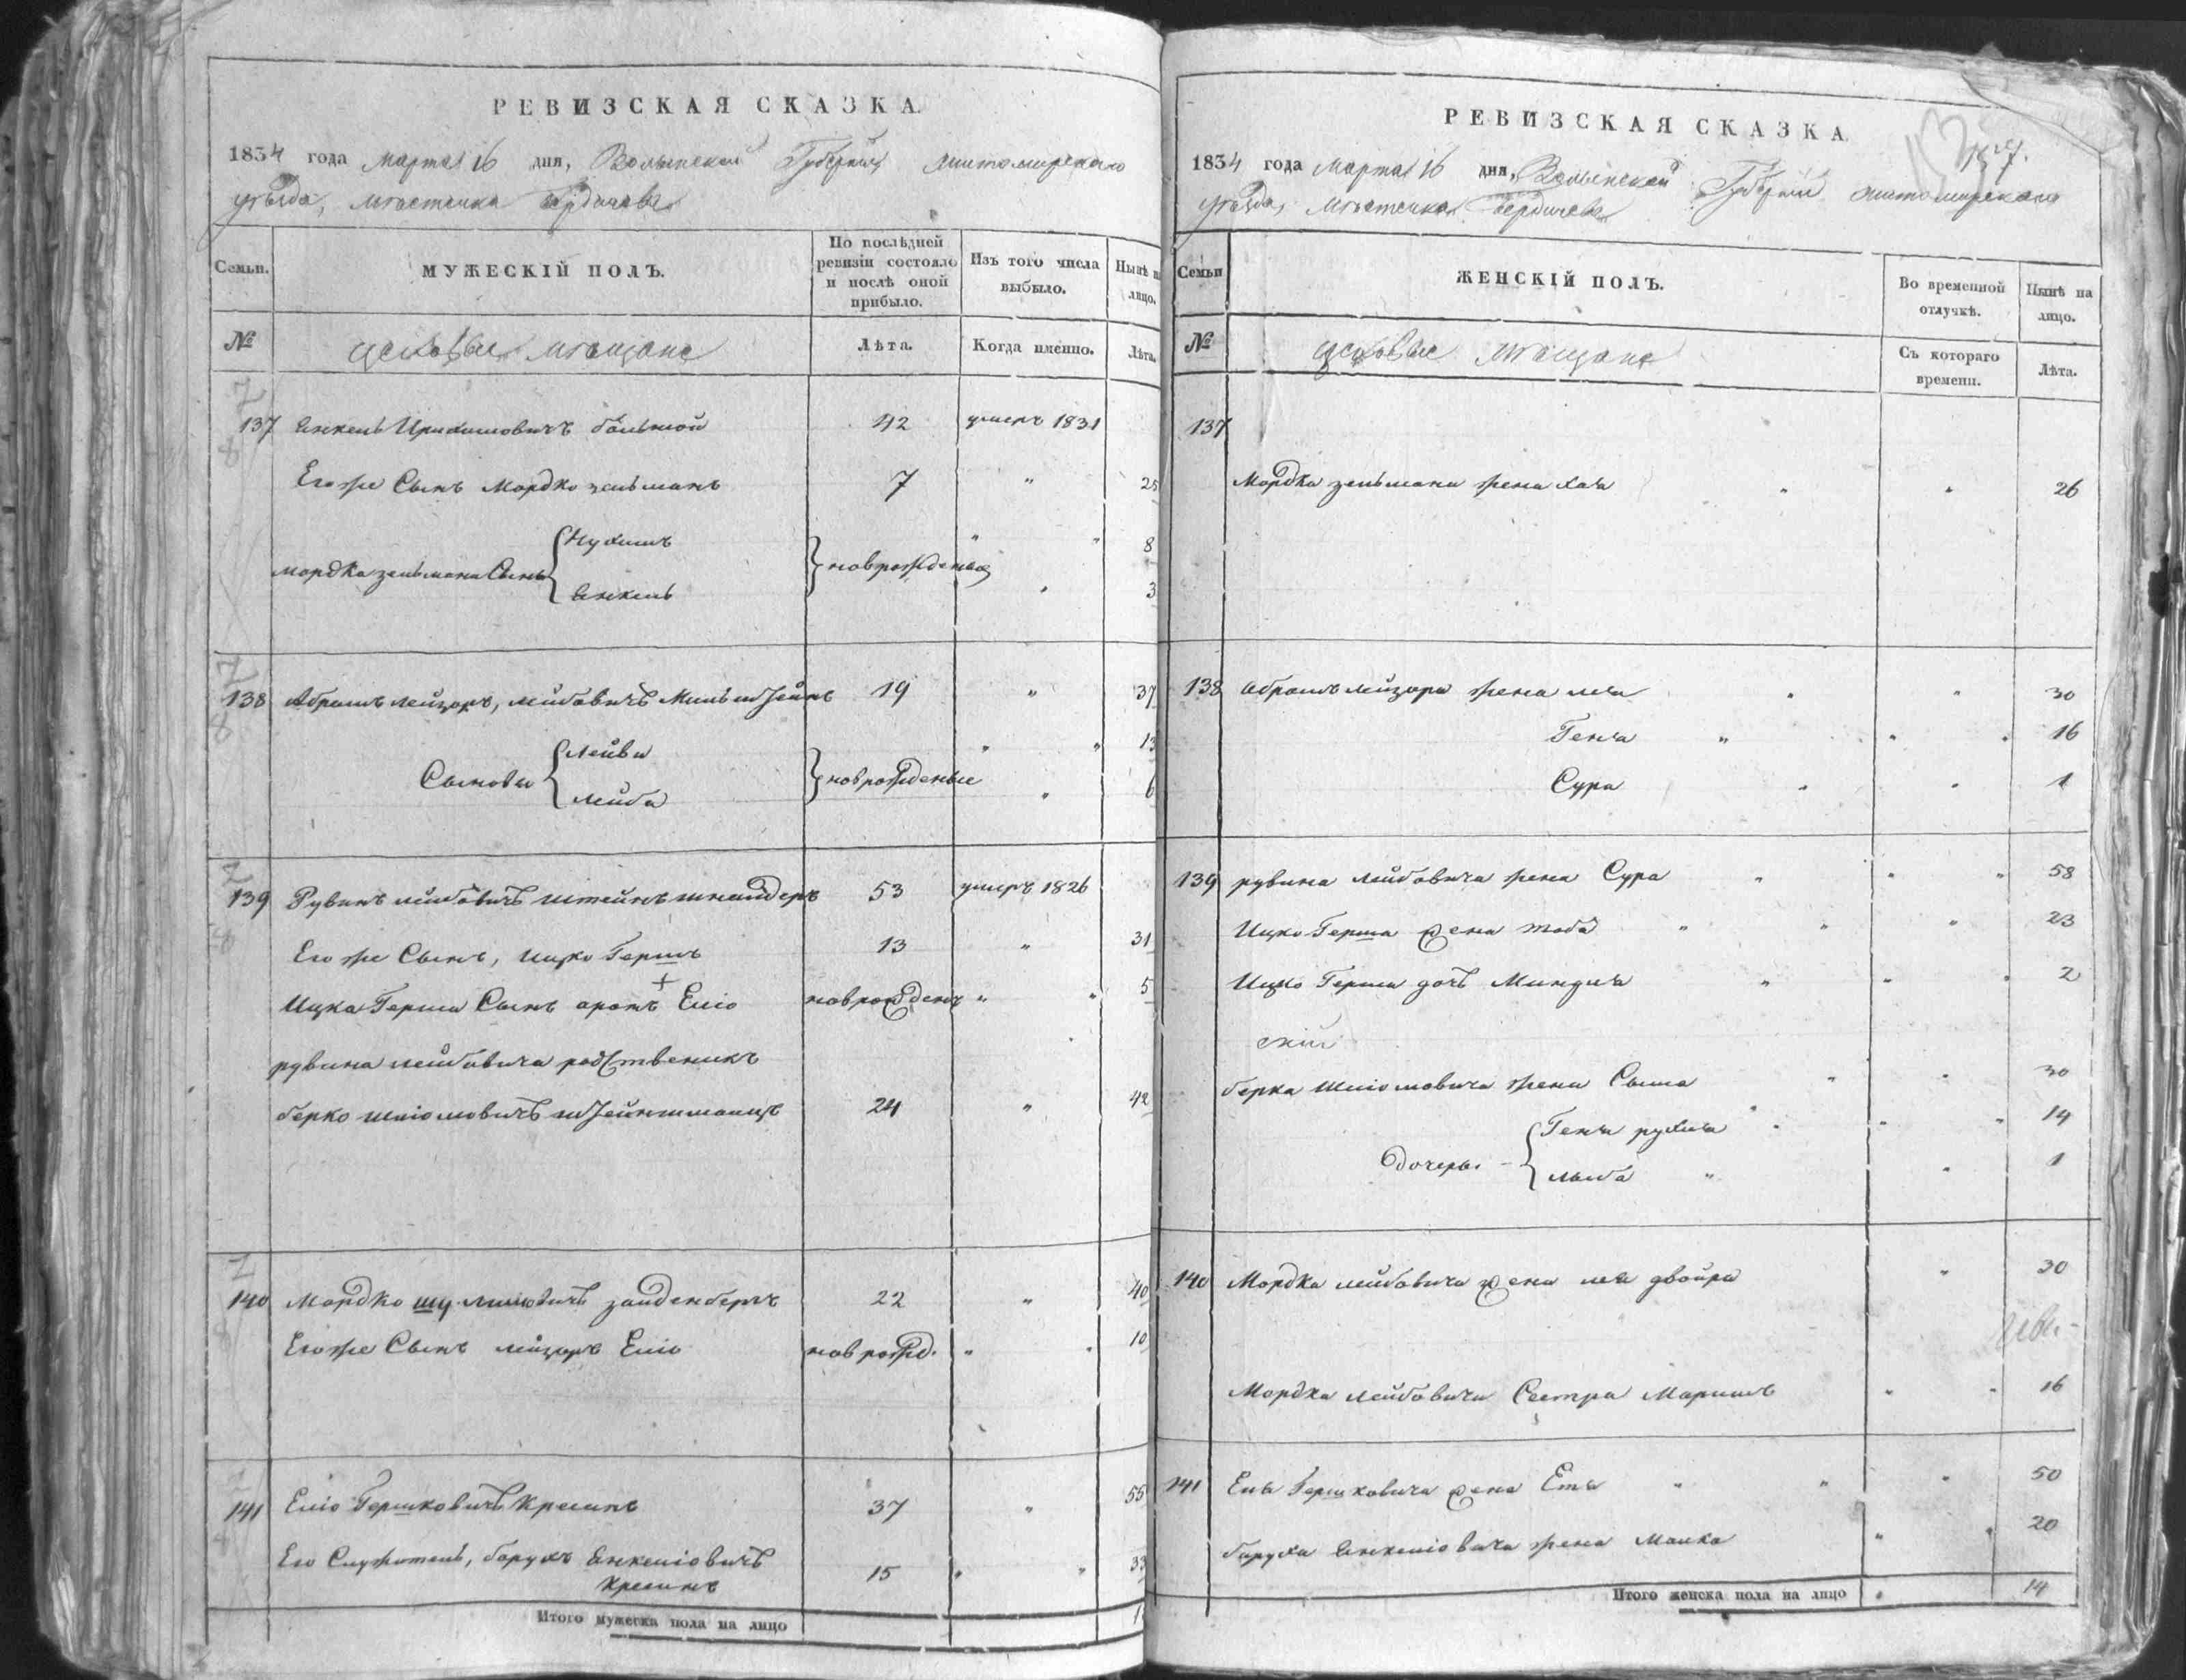 РЕВИЗСКАЯ СКАЗКА.
1834 года Марта 16 дня, Волынской Губернiи Житомирского
уѣзда, мѣстечка Бердичева
Семьи.
МУЖЕСКІЙ ПОЛЪ.
По послѣдней ревизіи состояло и послѣ оной прибыло.
Изъ того числа выбыло.
Нынѣ на лицо.
№
цеховые мѣщане
Лѣта.
Когда именно.
Лѣта.
137 Янкель больной 42 умеръ 1831
Его же Сынъ Мордко зельманъ 7 " 25
Нухимъ " " 8
Мордка зельмана Сынъ новрожденые
Янкель " 3
138 Абрамъ лейзоръ, лейбовичъ Мильштейнъ 19 " 37
Лейви " " 13
Сыновья новрожденые
лейба " 6
139 Рувинъ лейбовичъ штейнъшнайдеръ 53 умеръ 1826
Его же Сынъ, Ицко Гершъ 13 " 31
Ицка Герша Сынъ аронъ Еліо новрожденъ " " 5
рувина лейбовича родственикъ
берко шліомовичъ 24 " 42
140 Мордко зайденбергъ 22 " 40
Его же Сынъ лейзоръ Еліо новрожд. " 10
141 Еліо Гершковичъ Кресинъ 37 " 55
Его Служитель, барухъ Янкеліовичъ 15 " " 33
Кресинъ
Итого мужеска пола на лицо
РЕВИЗСКАЯ СКАЗКА.
1834 года Марта 16 дня, Волынской Губернiи Житомирского
уѣзда, Мѣстечка Бердичева
Семьи
ЖЕНСКІЙ ПОЛЪ.
Во временной отлучкѣ.
Нынѣ на лицо.
№
цеховые мѣщане
Съ котораго времени.
Лѣта.
137
Мордка зельмана жена хая " " 26
138 Абрамъ лейзора жена лея " " 30
Геня " " " 16
Сура " " 1
139 рувина лейбовича жена Сура " " " 58
Ицко Герша жена тоба " " " 23
Ицко Герша дочь Миндля " " " 2
берка шліомовича жена Сыма " " 30
Геня рухля " " " 14
дочеры
" " 1
140 Мордка лейбовича жена лея двойра " 30
Мордка лейбовича Сестра Маримъ " " 16
141 Еля Гершковича жена Етя " " " 50
баруха Янкеліовича жена Малка " " 20
Итого женска пола на лицо " 14